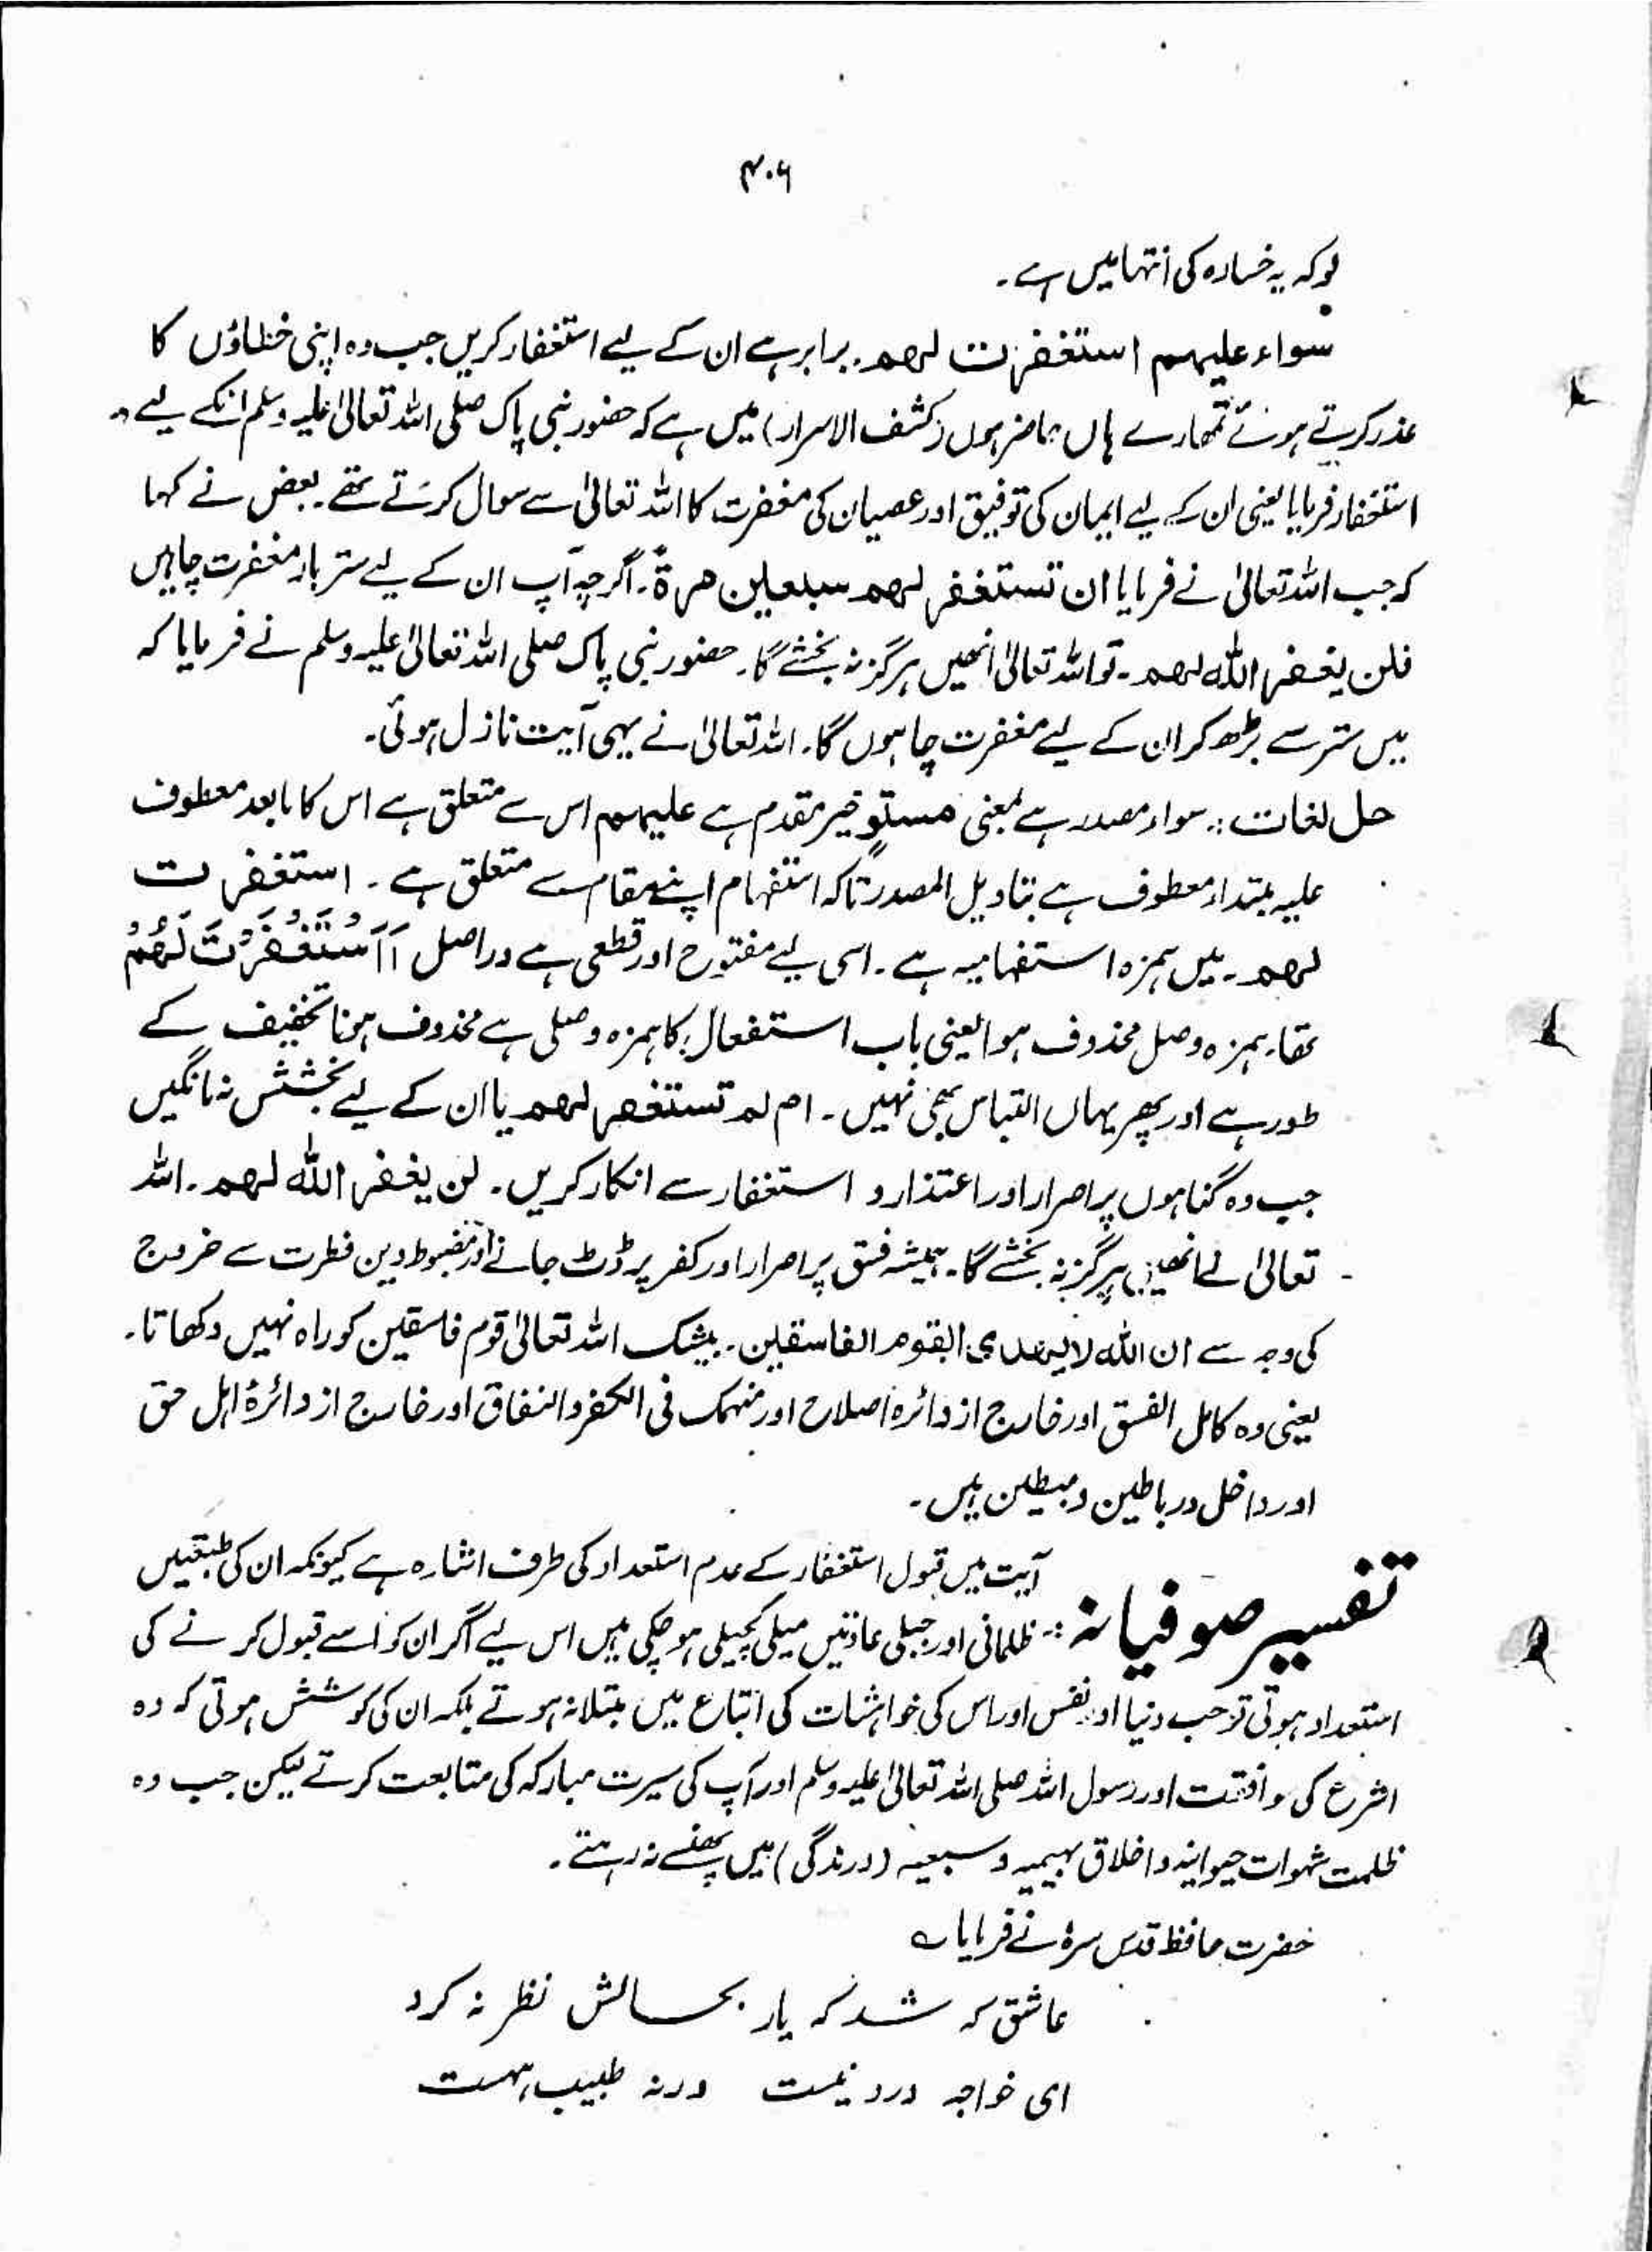 ۴۰۶
جو کہ یہ خسارہ کی انتہا میں ہے۔
سواء علیہم استغفرت لہم۔ برابر ہے ان کے لیے استغفار کریں جب وہ اپنی خطاؤں کا
عذر کرتے ہوئے تمھارے ہاں حاضر ہوں (کشف الاسرار) میں ہے کہ حضور نبی پاک صلی اللہ تعالیٰ علیہ وسلم انکے لیے
استغفار فرمایا یعنی ان کے لیے ایمان کی توفیق اور عصیان کی مغفرت کا اللہ تعالیٰ سے سوال کرتے تھے۔ بعض نے کہا
کہ جب اللہ تعالیٰ نے فرمایا ان تستغفر لہم سبعین مرۃ۔ اگرچہ آپ ان کے لیے ستر بار مغفرت چاہیں
فلن یغفر اللہ لہم۔ تو اللہ تعالیٰ انھیں ہرگز نہ بخشے گا۔ حضور نبی پاک صلی اللہ تعالیٰ علیہ وسلم نے فرمایا کہ
میں ستر سے بڑھ کر ان کے لیے مغفرت چاہوں گا۔ اللہ تعالیٰ نے یہی آیت نازل ہوئی۔
حل لغات :۔ سواء مصدر ہے بمعنی مستوٍ خبر مقدم ہے علیہم اس سے متعلق ہے اس کا مابعد معطوف
علیہ مبتداء معطوف ہے بتاویل المصدر تاکہ استفہام اپنے مقام سے متعلق ہے۔ استغفرت
لہم۔ میں ہمزہ استفہامیہ ہے۔ اسی لیے مفتوح اور قطعی ہے دراصل أَاَسْتَغْفَرْتَ لَہُمْ
تھا۔ ہمزہ وصل محذوف ہوا یعنی باب استفعال کا ہمزہ وصلی ہے محذوف ہونا تخفیف کے
طور ہے اور پھر یہاں التباس بھی نہیں۔ ام لم تستغفر لہم یا ان کے لیے بخشش نہ مانگیں
جب وہ گناہوں پر اصرار اور اعتذار و استغفار سے انکار کریں۔ لن یغفر اللہ لہم۔ اللہ
تعالیٰ انھیں ہرگز نہ بخشے گا۔ ہمیشہ فسق پر اصرار اور کفر پر ڈٹ جانے اور مضبوط دین فطرت سے خروج
کی وجہ سے ان اللہ لا یہدی القوم الفاسقین۔ بیشک اللہ تعالیٰ قوم فاسقین کو راہ نہیں دکھاتا۔
یعنی وہ کامل الفسق اور خارج از دائرہ اصلاح اور منہمک فی الکفر والنفاق اور خارج از دائرۂ اہل حق
اور داخل در باطین و مبطین ہیں۔
آیت میں قبول استغفار کے عدم استعداد کی طرف اشارہ ہے کیونکہ ان کی طبقیں
تفسیر صوفیانہ :۔ ظلمانی اور جبلی عادتیں میلی کچیلی ہو چکی ہیں اس لیے اگر ان کو اسے قبول کرنے کی
استعداد ہوتی تو حب دنیا اور نفس اور اس کی خواہشات کی اتباع میں مبتلا نہ ہوتے بلکہ ان کی کوشش ہوتی کہ وہ
شرع کی موافقت اور رسول اللہ صلی اللہ تعالیٰ علیہ وسلم اور آپ کی سیرت مبارکہ کی متابعت کرتے لیکن جب وہ
ظلمت شہوات حیوانیہ و اخلاق بہیمیہ و سبعیہ (درندگی) میں پھنسے نہ رہتے۔
حضرت حافظ قدس سرہٗ نے فرمایا ؎
عاشق کہ شد کہ یار بحالش نظر نہ کرد
ای خواجہ درد نیست ورنہ طبیب ہست